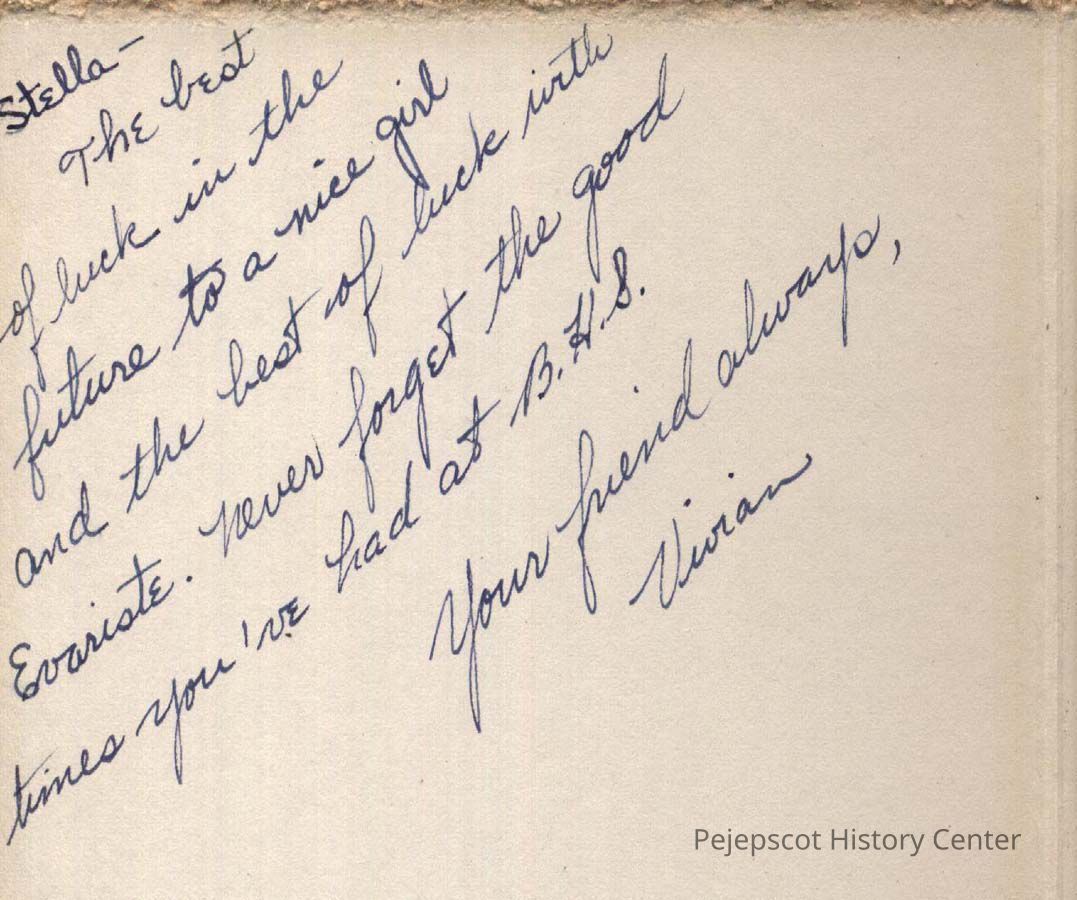 Stella—
The best
of luck in the
future to a nice girl
and the best of luck with
Evariste. Never forget the good
times you've had at B.H.S.
Your friend always,
Vivian
Pejepscot History Center